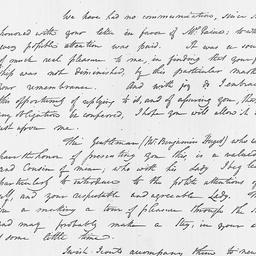 We have had no communication, since I
honored with your letter in favor of Mr. Paine; to wh
very possible attention was paid. It was a sou
of much real pleasure to me, in finding that your f
ship was not diminished, by this particular mark
your remembrance. And with joy do I embrace
this opportunity of applying to it, and of assuring you, tho
any obligations be conferred, I hope you will allow it
just upon me.
The Gentleman (Mr. Benjamin Huger) who wi
have the honor of presenting you this, is a valued
and Cousin of mine; who with his Lady I beg le
particularly to introduce to the polite attentions of
self, and your respectable and agreeable Lady. Th
are a making a tour of pleasure through the
and may probably make a stay, in your
of some little time.
Such Traits accompany them to new